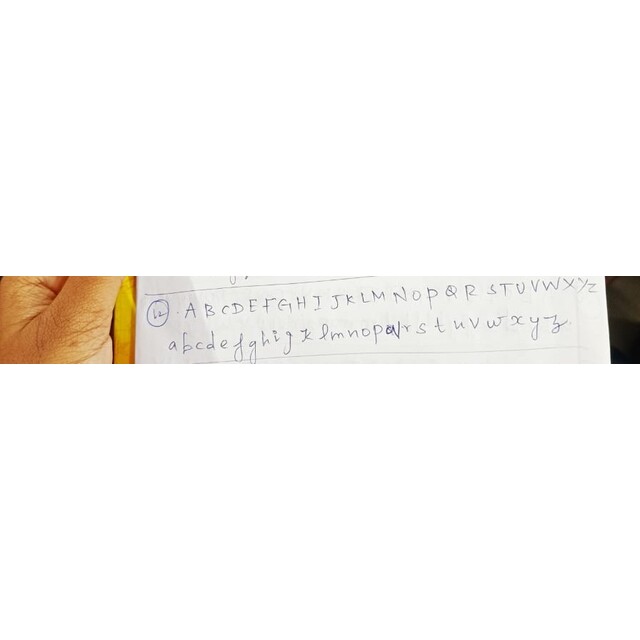 12. A B C D E F G H I J K L M N O P Q R S T U V W X Y Z
a b c d e f g h i j k l m n o p q r s t u v w x y z